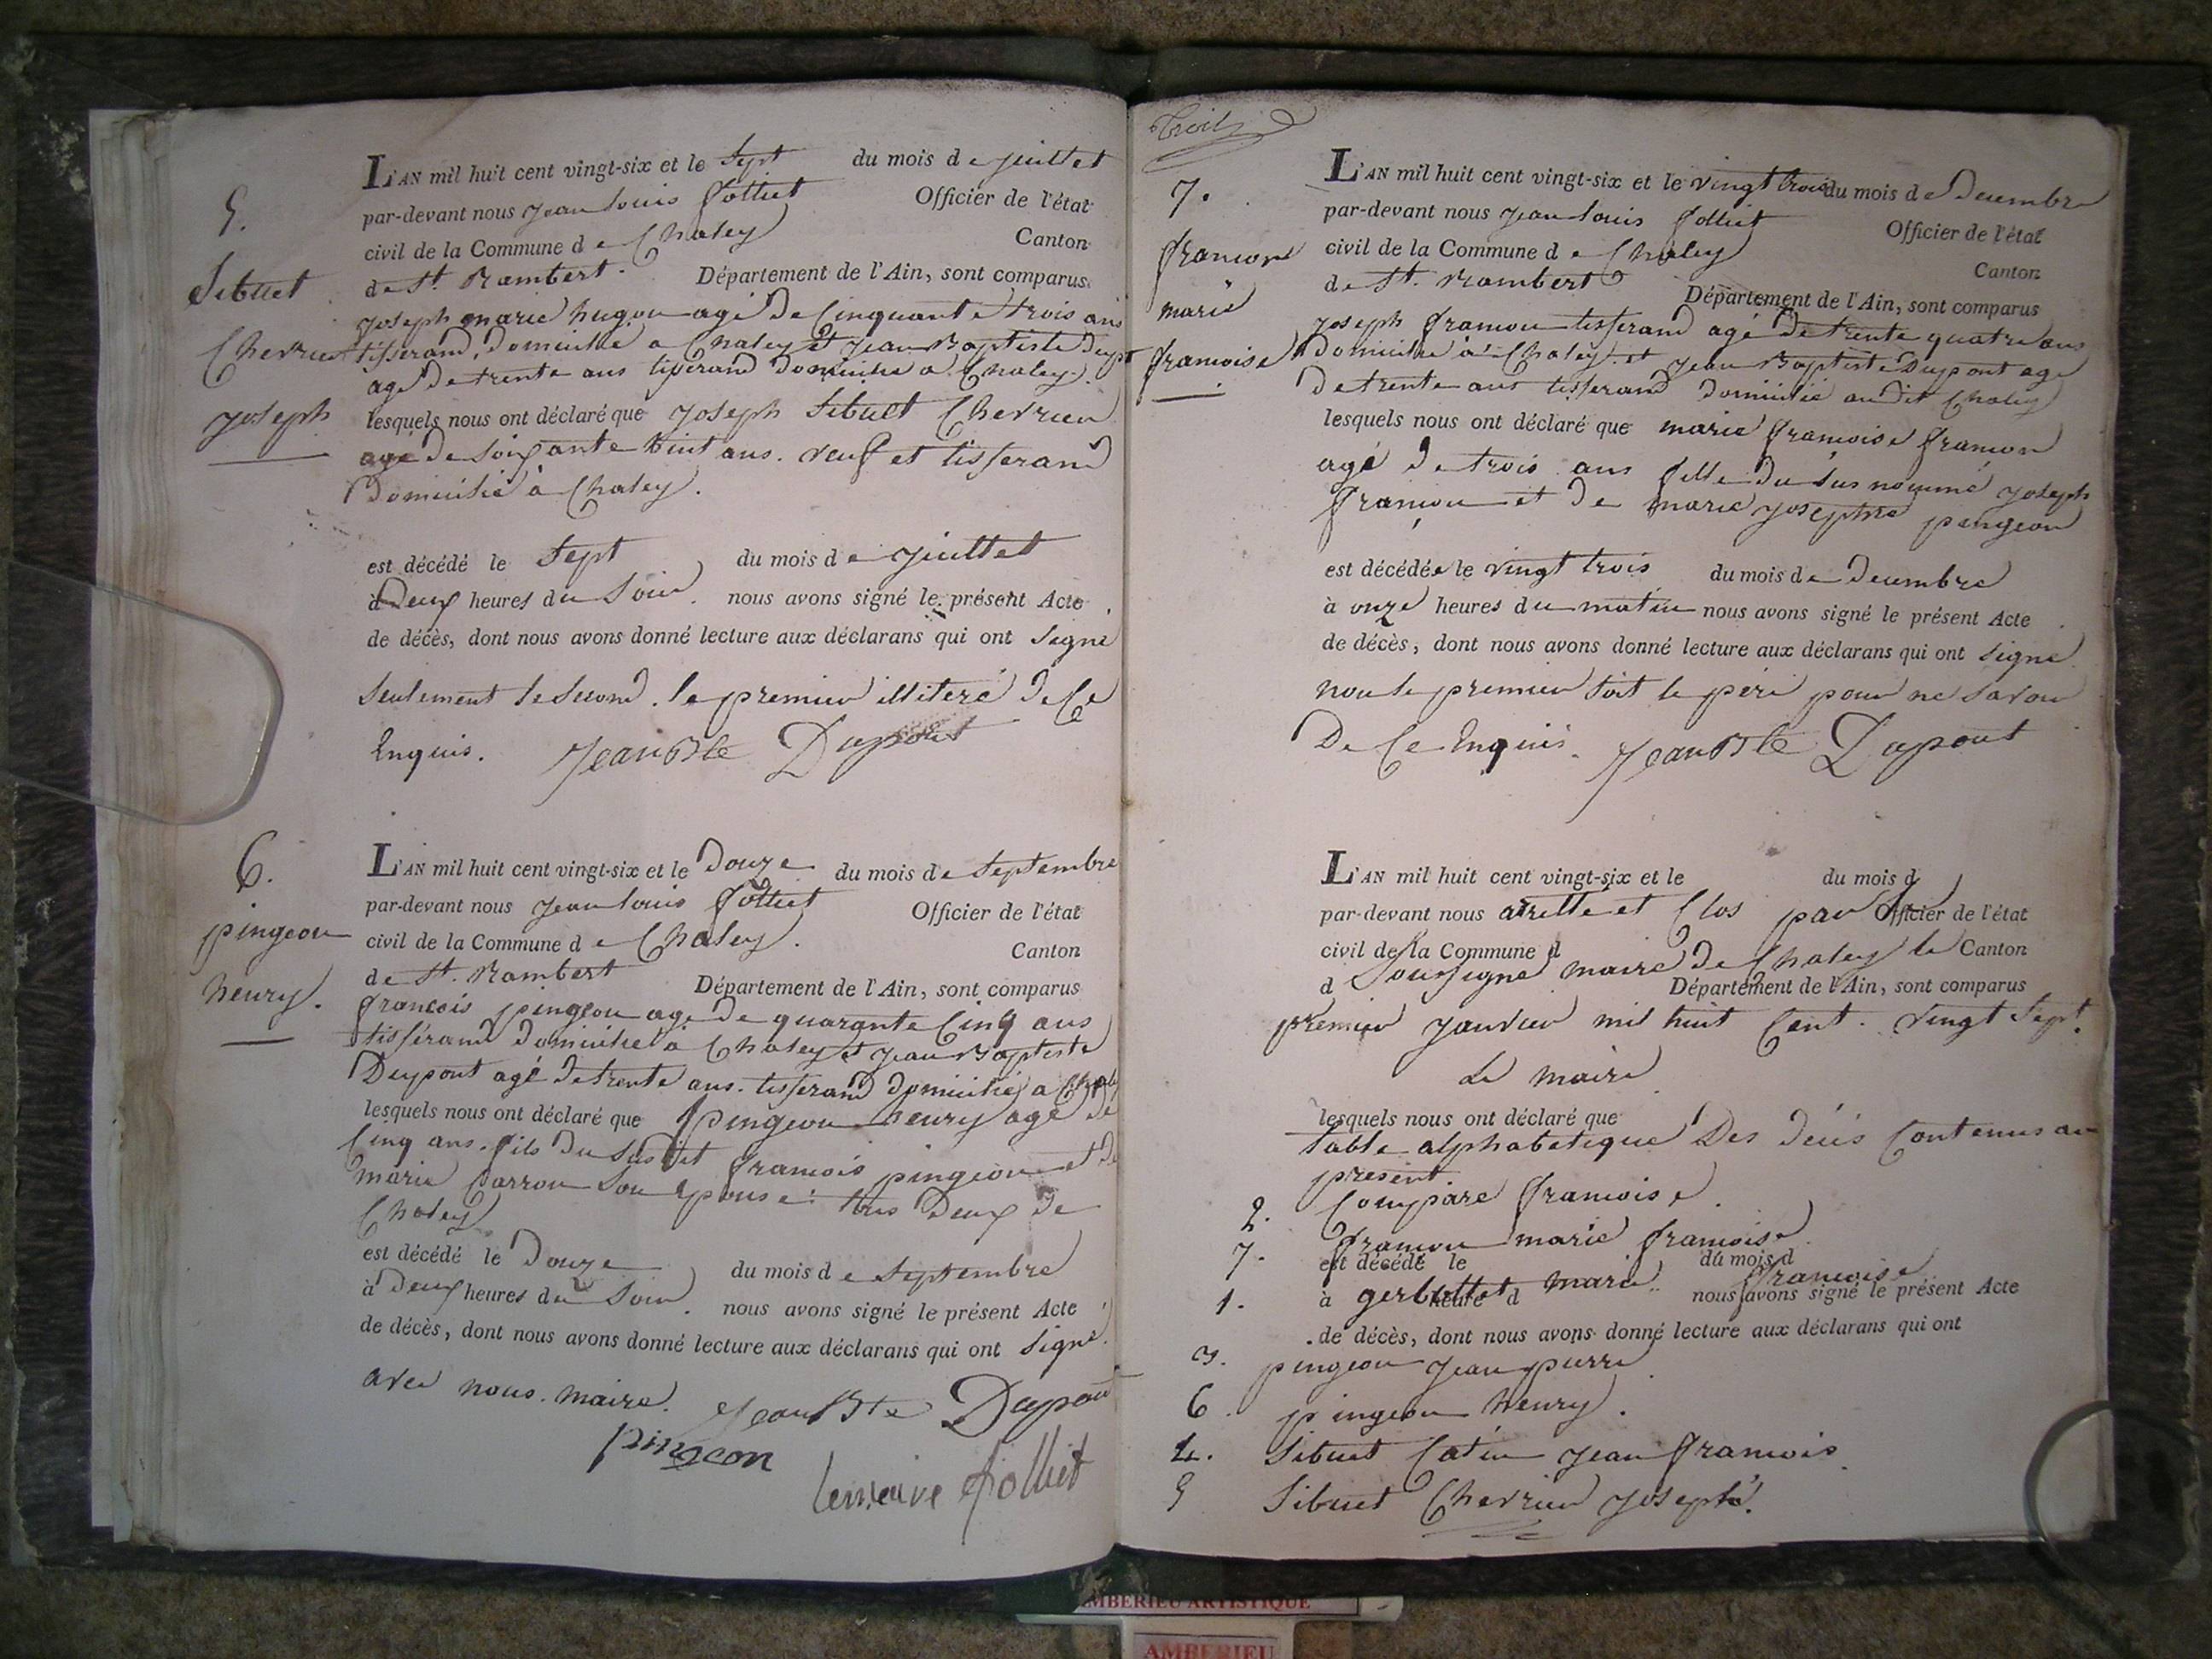 5.
Sibuet
Chevrier
joseph
L'AN mil huit cent vingt-six et le Sept du mois de juillet
par-devant nous jean louis folliet Officier de l'état
civil de la Commune de Chaley Canton
de St. Rambert. Département de l'Ain, sont comparus
joseph marie hugon agé de Cinquante trois ans
tisserand, domicilié a Chaley et jean Baptiste Dupont
agé de trente ans tisserand domicilié a Chaley.
lesquels nous ont déclaré que joseph Sibuet Chevrier
agé de soixante huit ans. veuf et tisserand
Domicilié à Chaley.
est décédé le Sept du mois de juillet
à Deux heures du Soir. nous avons signé le présent Acte
de décès, dont nous avons donné lecture aux déclarans qui ont Signé
Seulement le Second. le premier illiteré de Ce
Enquis. Jean Bte Dupont
6.
pingeon
henry.
L'AN mil huit cent vingt-six et le Douze du mois de Septembre
par-devant nous jean louis folliet Officier de l'état
civil de la Commune de Chaley. Canton
de St. Rambert Département de l'Ain, sont comparus
francois pingeon agé de quarante Cinq ans
tisserand domicilié a Chaley et jean Baptiste
Dupont agé de trente ans. tisserand domicilié a Chaley
lesquels nous ont déclaré que pingeon henry agé de
Cinq ans. fils du Susdit francois pingeon et de
marie Carron Son epouse. tous Deux de
Chaley
est décédé le Douze du mois de Septembre
à Deux heures du Soir. nous avons signé le présent Acte
de décès, dont nous avons donné lecture aux déclarans qui ont Signé.
avec nous. maire. Jean Bte Dupont
pingeon
le maire folliet
7.
francon
marie
francoise
L'AN mil huit cent vingt-six et le vingt trois du mois de Decembre
par-devant nous jean louis folliet Officier de l'état
civil de la Commune de Chaley Canton
de St. Rambert Département de l'Ain, sont comparus
joseph francon tisserand agé de trente quatre ans
Domicilié à Chaley. et jean Baptiste Dupont agé
de trente ans tisserand domicilié au dit Chaley
lesquels nous ont déclaré que marie francoise francon
agé de trois ans fille du sus nommé joseph
francon et de marie josephte pingeon
est décédée le vingt trois du mois de Decembre
à onze heures du matin nous avons signé le présent Acte
de décès, dont nous avons donné lecture aux déclarans qui ont signé
non le premier soit le pere pour ne savoir
De Ce Enquis. Jean Bte Dupont
L'AN mil huit cent vingt-six et le du mois d
par-devant nous arretté et Clos par Officier de l'état
civil de la Commune d Canton
Soussigné maire de Chaley le
d Département de l'Ain, sont comparus
premier janvier mil huit Cent. vingt Sept.
Le maire
lesquels nous ont déclaré que
table alphabetique Des deces Contenus au
present
2. Compare francoise.
7. francon marie francoise
est décédé le du mois d
1. gerbollet marie francoise
à heure d nous avons signé le présent Acte
de décès, dont nous avons donné lecture aux déclarans qui ont
3. pingeon jean pierre
6. pingeon henry.
4. Sibuet Catin jean francois.
5 Sibuet Chevrier joseph.
AMBERIEU ARTISTIQUE
AMBERIEU